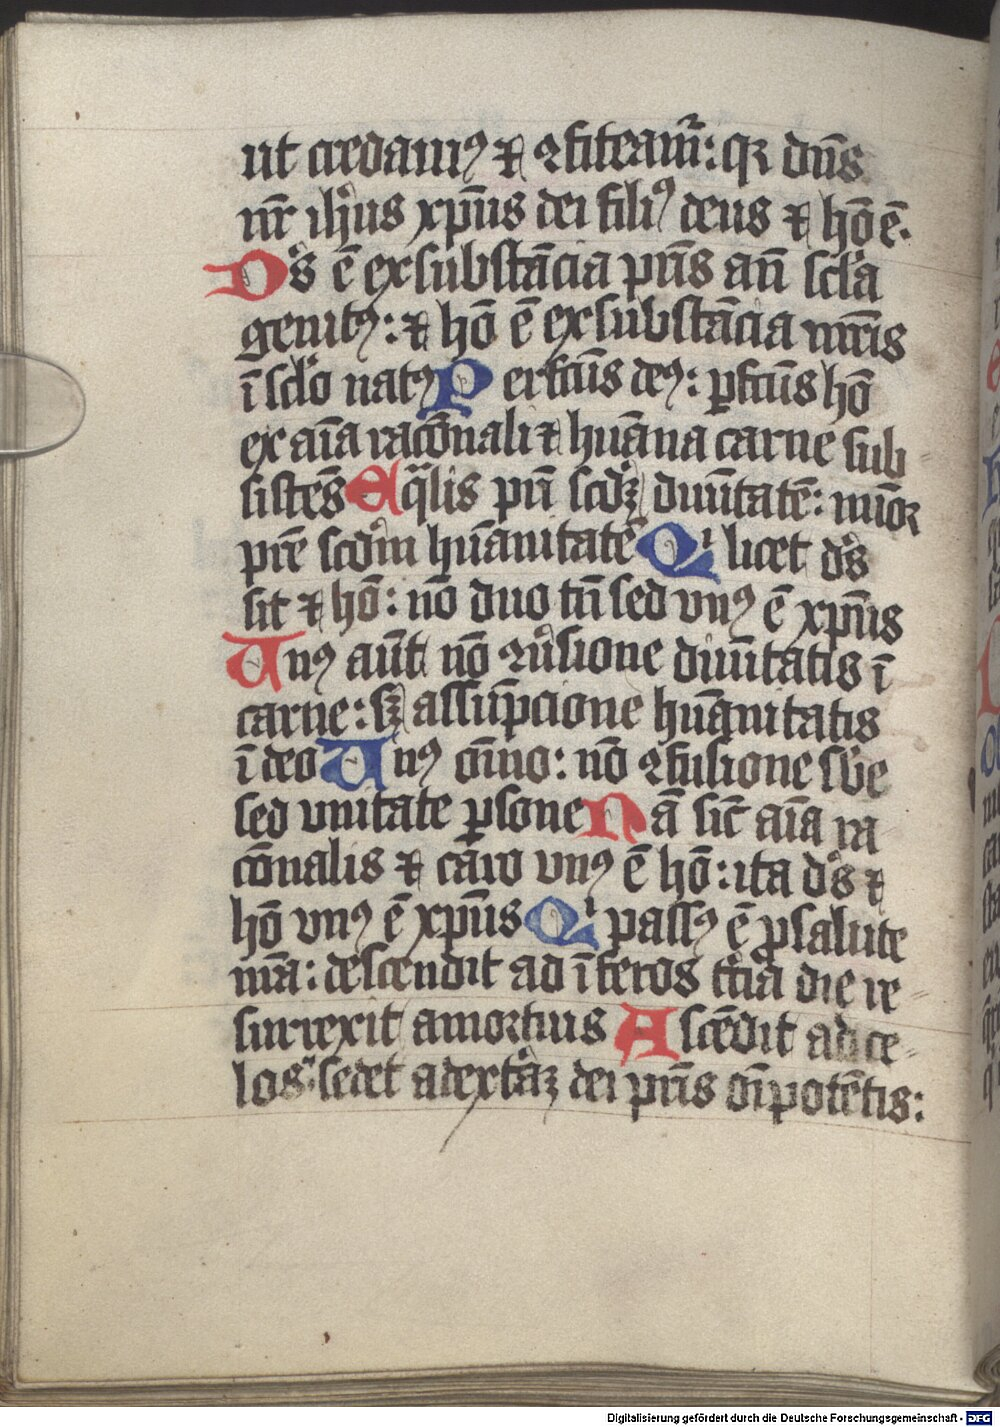 ut credamꝰ ⁊ ꝯfiteamᷣ: qꝛ dn̄s
nr̄ ih̓us xp̄us dei filiꝰ deus ⁊ hō ē.
Ds̓ ē ex substācia pr̄is an̄ scl̓a
genitꝰ: ⁊ hō ē ex substācia mr̄is
ī scl̓o natꝰ Perfc̄us deꝰ: ꝑfc̄us hō
ex aīa racōnali ⁊ huāna carne sub
sistēs Eqᷓlis pr̄i scd̓ꝫ diuītatē: mīoꝛ
pr̄e scd̓m huānitatē Qͥ licet ds̓
sit ⁊ hō: nō duo tn̄ sed vnꝰ ē xp̄us
Vnꝰ aūt nō ꝯu̓sione diuītatis ī
carnē: sꝫ assūpcione huāᷓnitatis
ī deo Vnꝰ oīno: nō ꝯfusione sb̓e
sed vnitate ꝑsone Nā sic̄ aīa ra
cōnalis ⁊ caro vnꝰ ē hō: ita ds̓ ⁊
hō vnꝰ ē xp̄us Qͥ passꝰ ē ꝓ salute
nr̄a: descendit ad īferos tc̓ia die re⸗
surrexit a moꝛtuis Ascēdit ad ce⸗
los: sedet ad extᷓaꝫ dei pr̄is oīpotētis:
Digitalisierung gefördert durch die Deutsche Forschungsgemeinschaft - DFG